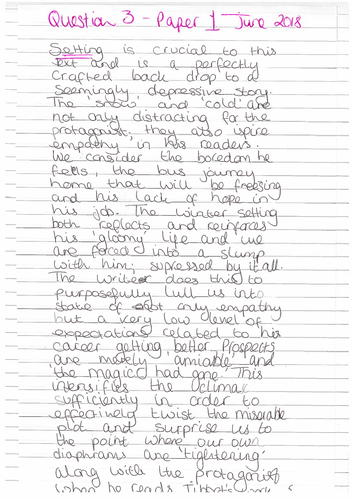 Question 3 - Paper 1 June 2018
Setting is crucial to this
text and is a perfectly
crafted back drop to a
seemingly depressive story.
The 'snow' and 'cold' are
not only distracting for the
protagonist, they also ispire
empathy in his readers.
We consider the boredom he
feels, the bus journey
home that will be freezing
and his lack of hope in
his job. The winter setting
both reflects and reinforces
his 'gloomy' life and we
are forced into a slump
with him; supressed by it all.
The writer does this to
purposefully lull us into
state of not only empathy
but a very low level of
expectations related to his
career getting better. Prospects
are merely 'amiable' and
'the magic had gone'. This
intensifies the climax
sufficiently in order to
effectively twist the miserable
plot and surprise us to
the point where our own
diaphrams are 'tightening'
along with the protagonist
when he reads Tibbet's